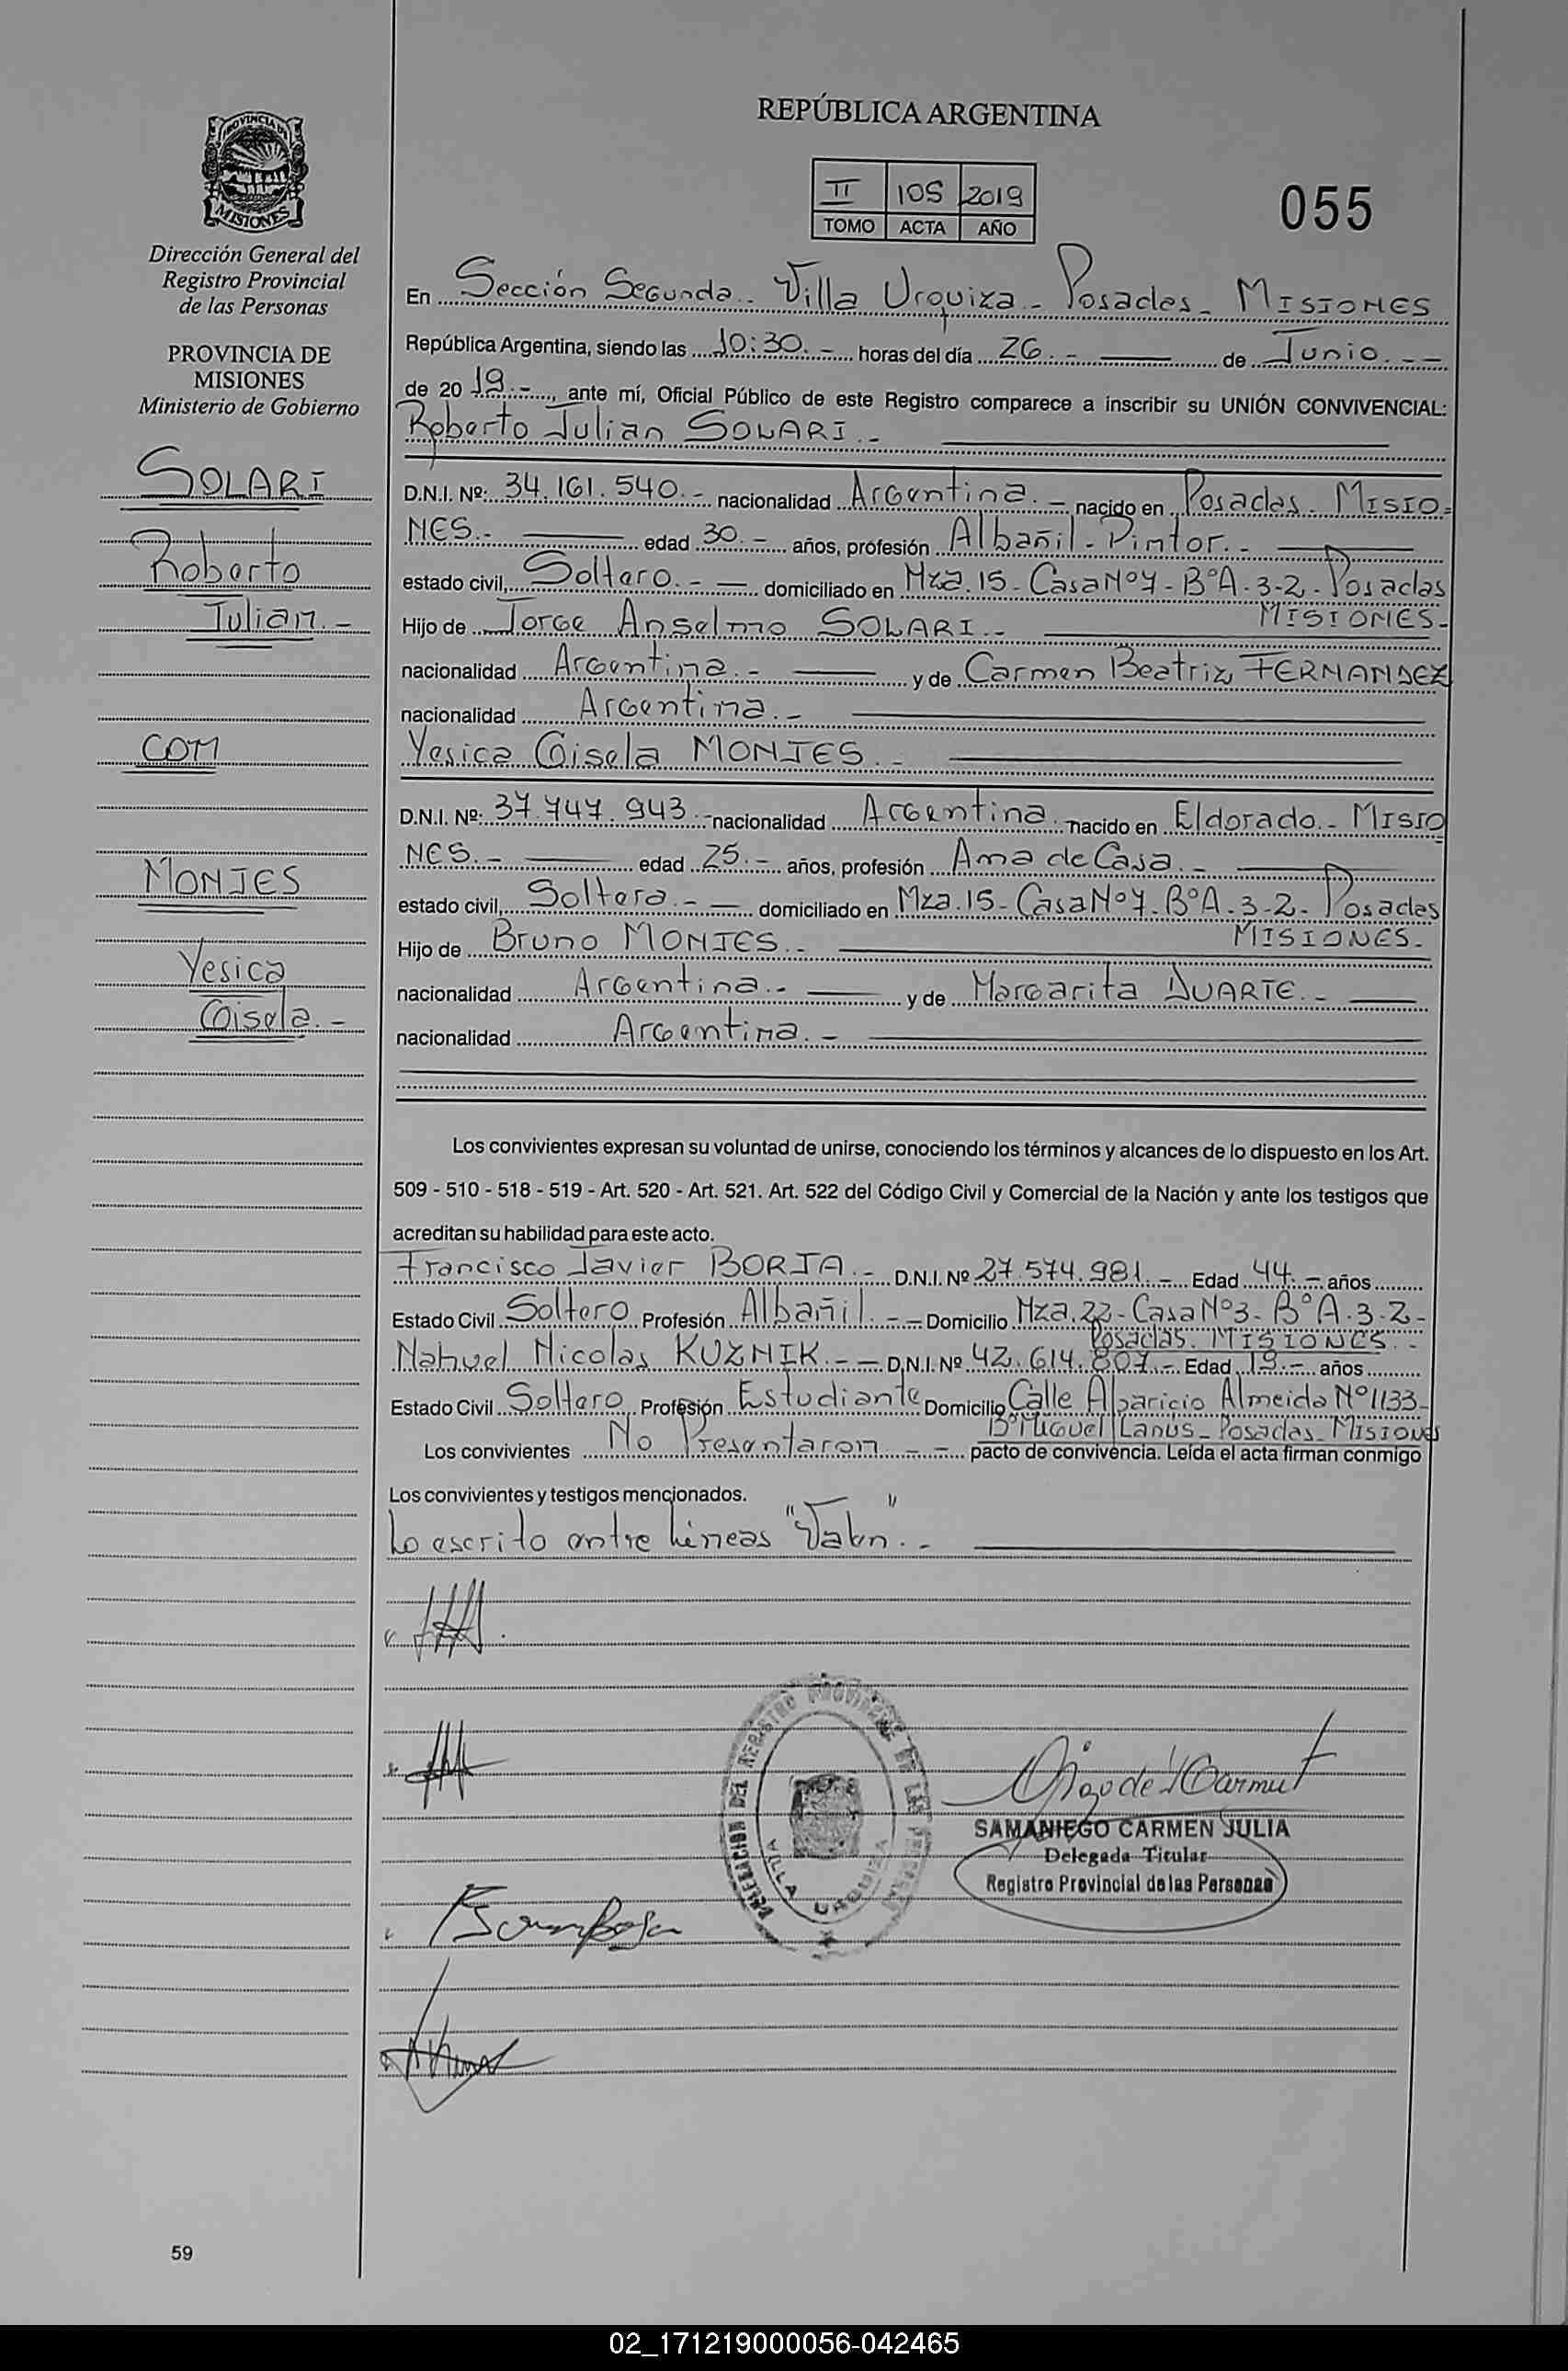 REPÚBLICA ARGENTINA
II 105 2019
TOMO ACTA AÑO
055
PROVINCIA DE
MISIONES
Dirección General del
Registro Provincial
de las Personas
PROVINCIA DE
MISIONES
Ministerio de Gobierno
SOLARI
Roberto
Julian.-
CON
MONJES
Yesica
Gisela.-
En Sección Segunda.. Villa Urquiza - Posadas - MISIONES
República Argentina, siendo las 10:30.- horas del día 26.- de Junio.--
de 20 19.-, ante mí, Oficial Público de este Registro comparece a inscribir su UNIÓN CONVIVENCIAL:
Roberto Julian SOLARI.-
D.N.I. Nº: 34.161.540.- nacionalidad Argentina.- nacido en Posadas - MISIO=
NES.- edad 30.- años, profesión Albañil - Pintor.-
estado civil, Soltero.- domiciliado en Mza.15 - Casa Nº 7 - BºA-3-2- Posadas
MISIONES-
Hijo de Jorge Anselmo SOLARI.-
nacionalidad Argentina.- y de Carmen Beatriz FERNANDEZ
nacionalidad Argentina.-
Yesica Gisela MONJES.-
D.N.I. Nº: 37.747.943.- nacionalidad Argentina. nacido en Eldorado.- MISIO
NES.- edad 25.- años, profesión Ama de Casa.-
estado civil, Soltera.- domiciliado en Mza.15- Casa Nº 7. BºA-3-2- Posadas
MISIONES.-
Hijo de Bruno MONJES.-
nacionalidad Argentina.- y de Margarita DUARTE.-
nacionalidad Argentina.-
Los convivientes expresan su voluntad de unirse, conociendo los términos y alcances de lo dispuesto en los Art.
509 - 510 - 518 - 519 - Art. 520 - Art. 521. Art. 522 del Código Civil y Comercial de la Nación y ante los testigos que
acreditan su habilidad para este acto.
Francisco Javier BORJA.- D.N.I. Nº 27.574.981.- Edad 44.- años
Estado Civil Soltero Profesión Albañil.-- Domicilio Mza.22- Casa Nº3- BºA-3-2-
Posadas. MISIONES.-
Nahuel Nicolas KUZNIK.-- D.N.I. Nº 42.614.807.- Edad 19.- años
Estado Civil Soltero Profesión Estudiante Domicilio Calle Aparicio Almeida Nº1133-
Bº Miguel Lanús- Posadas- MISIONES
Los convivientes No Presentaron.-- pacto de convivencia. Leída el acta firman conmigo
Los convivientes y testigos mencionados.
Lo escrito entre líneas "Valen".-
DELEGACION DEL REGISTRO PROVINCIAL DE LAS PERSONAS
VILLA URQUIZA
SAMANIEGO CARMEN JULIA
Delegada Titular
Registro Provincial de las Personas
59
02_171219000056-042465